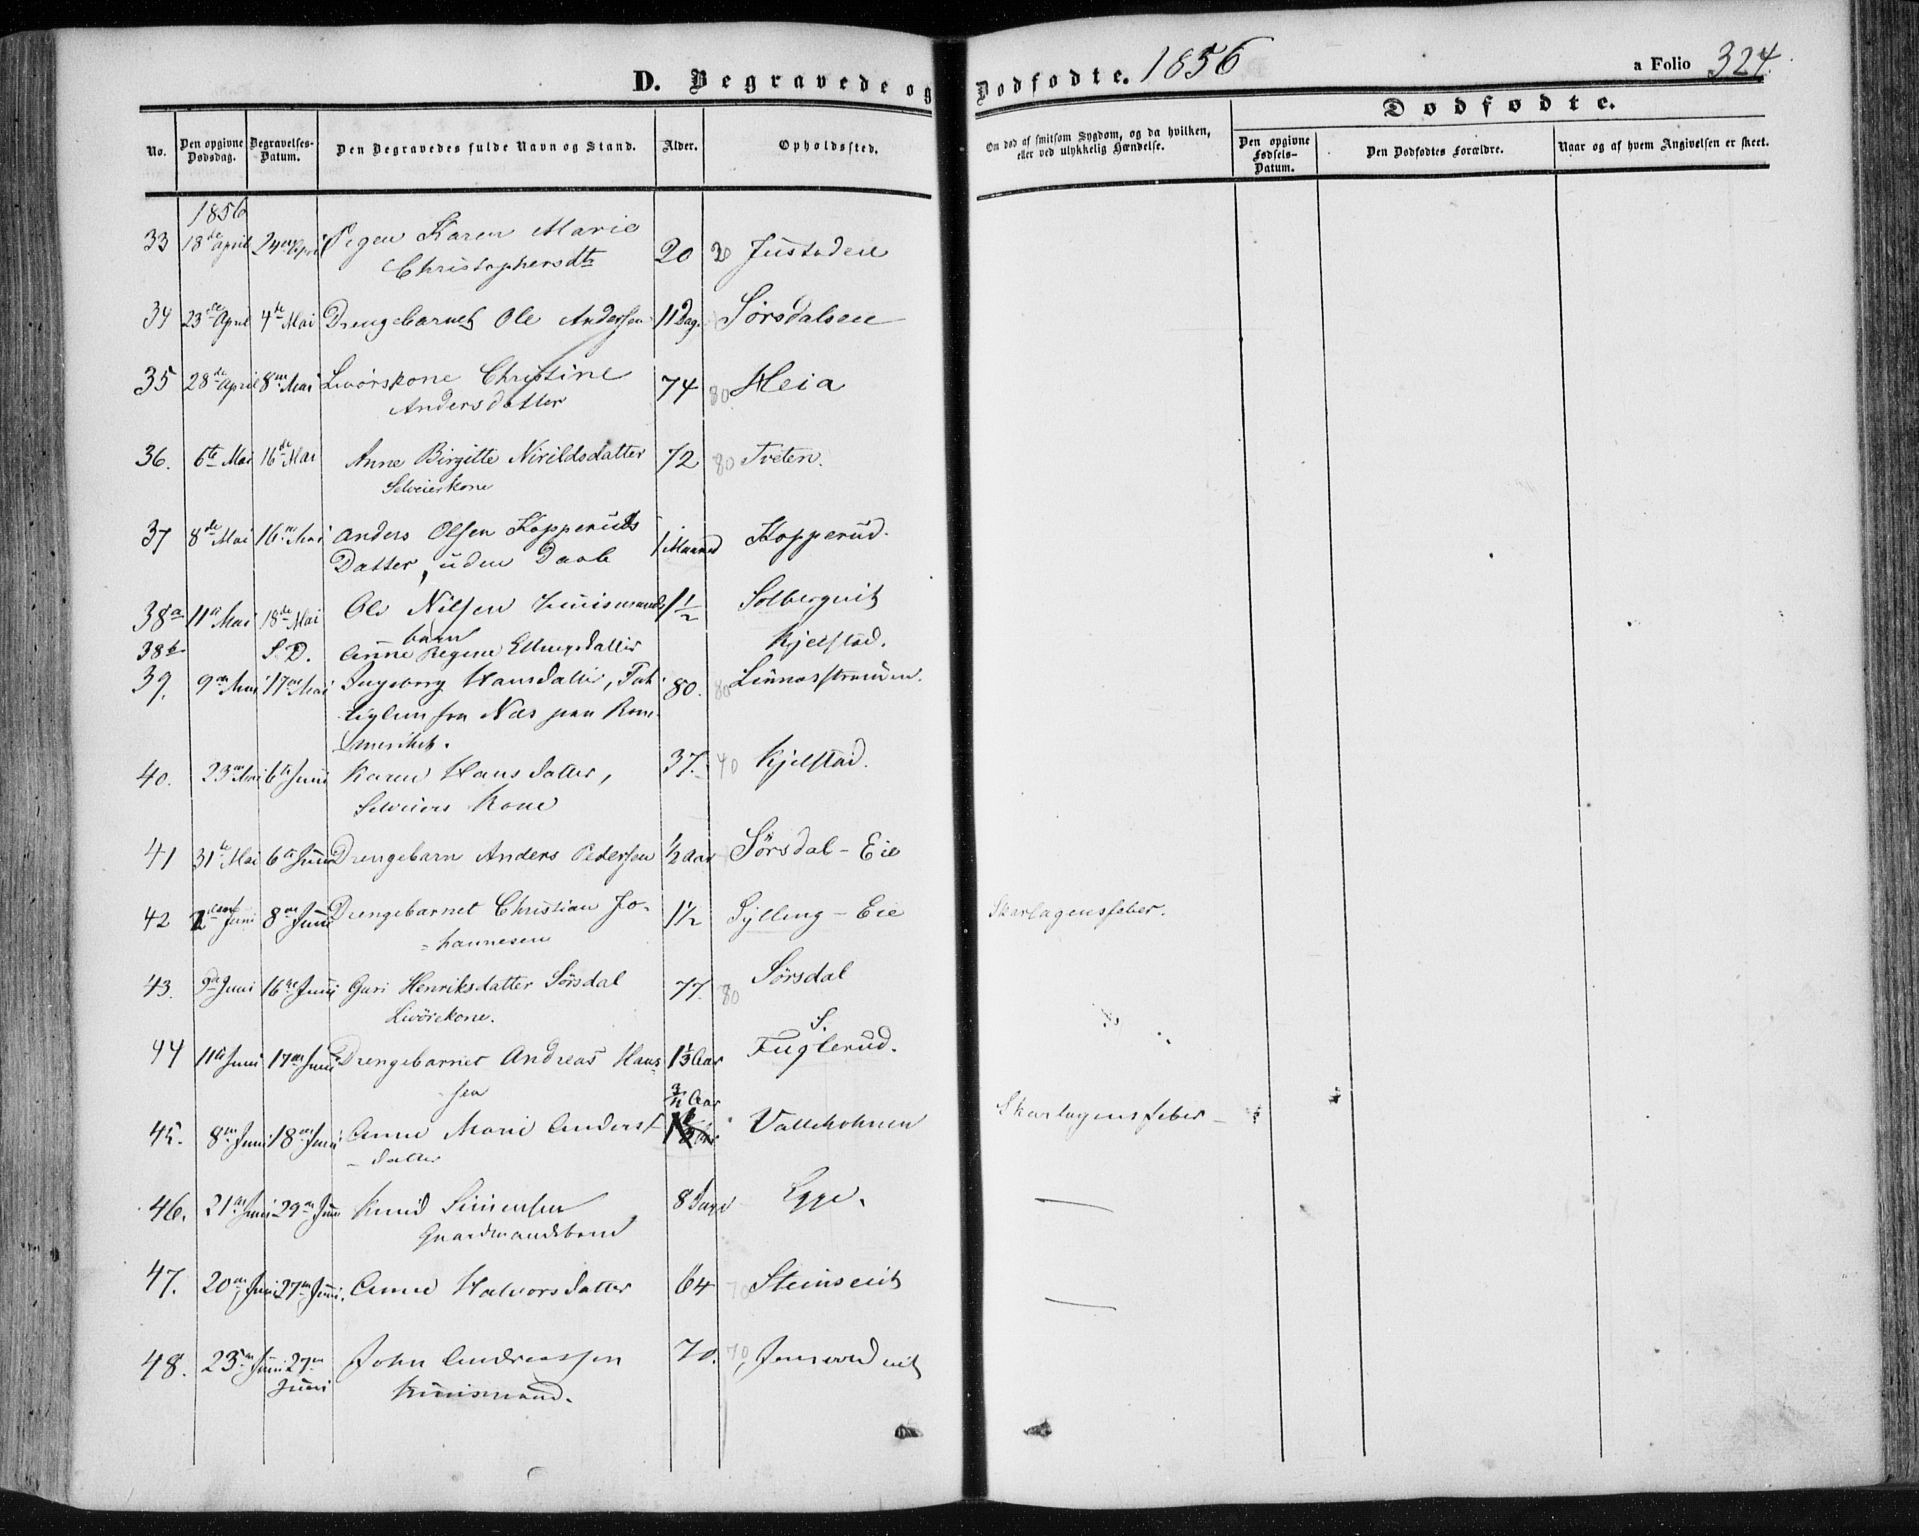 D. Begravede og Dødfødte. 1856 a Folio 324.
Dødfødte.
No. Den opgivne Dødsdag. Begravelses-Datum. Den Begravedes fulde Navn og Stand. Alder. Opholdssted. Om død af smitsom Sygdom, og da hvilken, eller ved ulykkelig Hændelse. Den opgivne Fødsels-Datum. Den Dødfødtes Forældre. Naar og af hvem Angivelsen er skeet.
1856
33 18de April 24de April Pigen Karen Marie 20 20 Justadeie
Christophersdtr
34 23de April 4de Mai Drengebarnet Ole Andersen 11 Dag. Sørsdalseie
35 28de April 8de Mai Livørskone Christine 74 80 Heia
Andersdatter
36. 6te Mai 16de Mai Anne Birgitte Nirildsdatter 72 80 Tveten.
Selveierkone
37 8de Mai 16de Mai Anders Olsen Kopperuds 1 Maaned Kopperud.
Datter, uden Daab
38a 11te Mai 18de Mai Ole Nilsen Huusmands 1 1/2 Solbergeit
barn
38b S. D. Anne Regine Ellingsdatter Kjelstad.
39. 9de Mai 17de Mai Ingeborg Hansdatter, Fat- 80. 80 Linnesstranden.
tiglem fra Næs paa Rom-
merike.
40. 23de Mai 6te Juni Karen Hansdatter, 37. 40 Kjelstad.
Selveiers Kone
41 31te Mai 6te Juni Drengebarn Anders Pedersen 1/2 Aar Sørsdal-Eie
42 Juni 8de Juni Drengebarnet Christian Jo- 1 1/2 Sylling-Eie Skarlagensfeber.
hannesen
43. 9de Juni 16de Juni Guri Henriksdatter Sørsdal 77. 80 Sørsdal
Livørekone.
44 11te Juni 17de Juni Drengebarnet Andreas Han- 1 1/3 Aar S. Fuglerud.
sen
45. 8de Juni 18de Juni Anne Marie Anders- Aar Skarlagensfeber
datter
46. 21de Juni 29de Juni Knud Simensen 8 Dage Egge. —
Gaardmandsbarn
47. 20de Juni 27de Juni. Anne Halvorsdatter 64 70 Steinseit —
48. 23de Juni 27de Juni John Andreassen 70. 70
Huusmand.